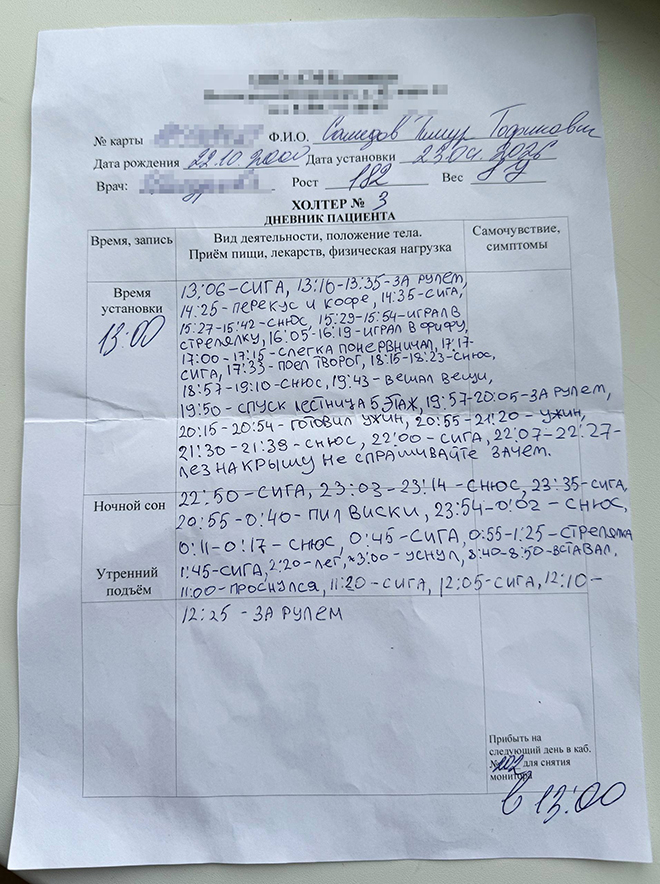 № карты Ф.И.О. Самедов Тимур Тофикович
Дата рождения 22.10.2000 Дата установки 23.04.2026
Врач: Рост 182 Вес
ХОЛТЕР № 3
ДНЕВНИК ПАЦИЕНТА
Время, запись
Вид деятельности, положение тела.
Приём пищи, лекарств, физическая нагрузка
Самочувствие,
симптомы
Время
установки
13:00
13:06-СИГА, 13:10-13:35-ЗА РУЛЕМ,
14:25-ПЕРЕКУС И КОФЕ, 14:35-СИГА,
15:27-15:42-СНЮС, 15:29-15:54-ИГРАЛ В
СТРЕЛЯЛКУ, 16:05-16:19-ИГРАЛ В ФИФУ,
17:00-17:15-СЛЕГКА ПОНЕРВНИЧАЛ, 17:17-
СИГА, 17:33-ПОЕЛ ТВОРОГ, 18:15-18:23-СНЮС,
18:57-19:10-СНЮС, 19:43-ВЕШАЛ ВЕЩИ,
19:50-СПУСК ЛЕСТНИЦА 5 ЭТАЖ, 19:57-20:05-ЗА РУЛЕМ,
20:15-20:54-ГОТОВИЛ УЖИН, 20:55-21:20-УЖИН,
21:30-21:39-СНЮС, 22:00-СИГА, 22:07-22:27-
ЛЕЗ НА КРЫШУ НЕ СПРАШИВАЙТЕ ЗАЧЕМ.
Ночной сон
22:50-СИГА, 23:03-23:14-СНЮС, 23:35-СИГА,
20:55-0:40-ПИЛ ВИСКИ, 23:54-0:02-СНЮС,
0:11-0:17-СНЮС, 0:45-СИГА, 0:55-1:25-СТРЕЛЯЛКА
Утренний
подъём
1:45-СИГА, 2:20-ЛЕГ, ×3:00-УСНУЛ, 8:40-8:50-ВСТАВАЛ,
11:00-ПРОСНУЛСЯ, 11:20-СИГА, 12:05-СИГА, 12:10-
12:25-ЗА РУЛЕМ
Прибыть на
следующий день в каб.
№ 202 для снятия
монитора
в 13:00